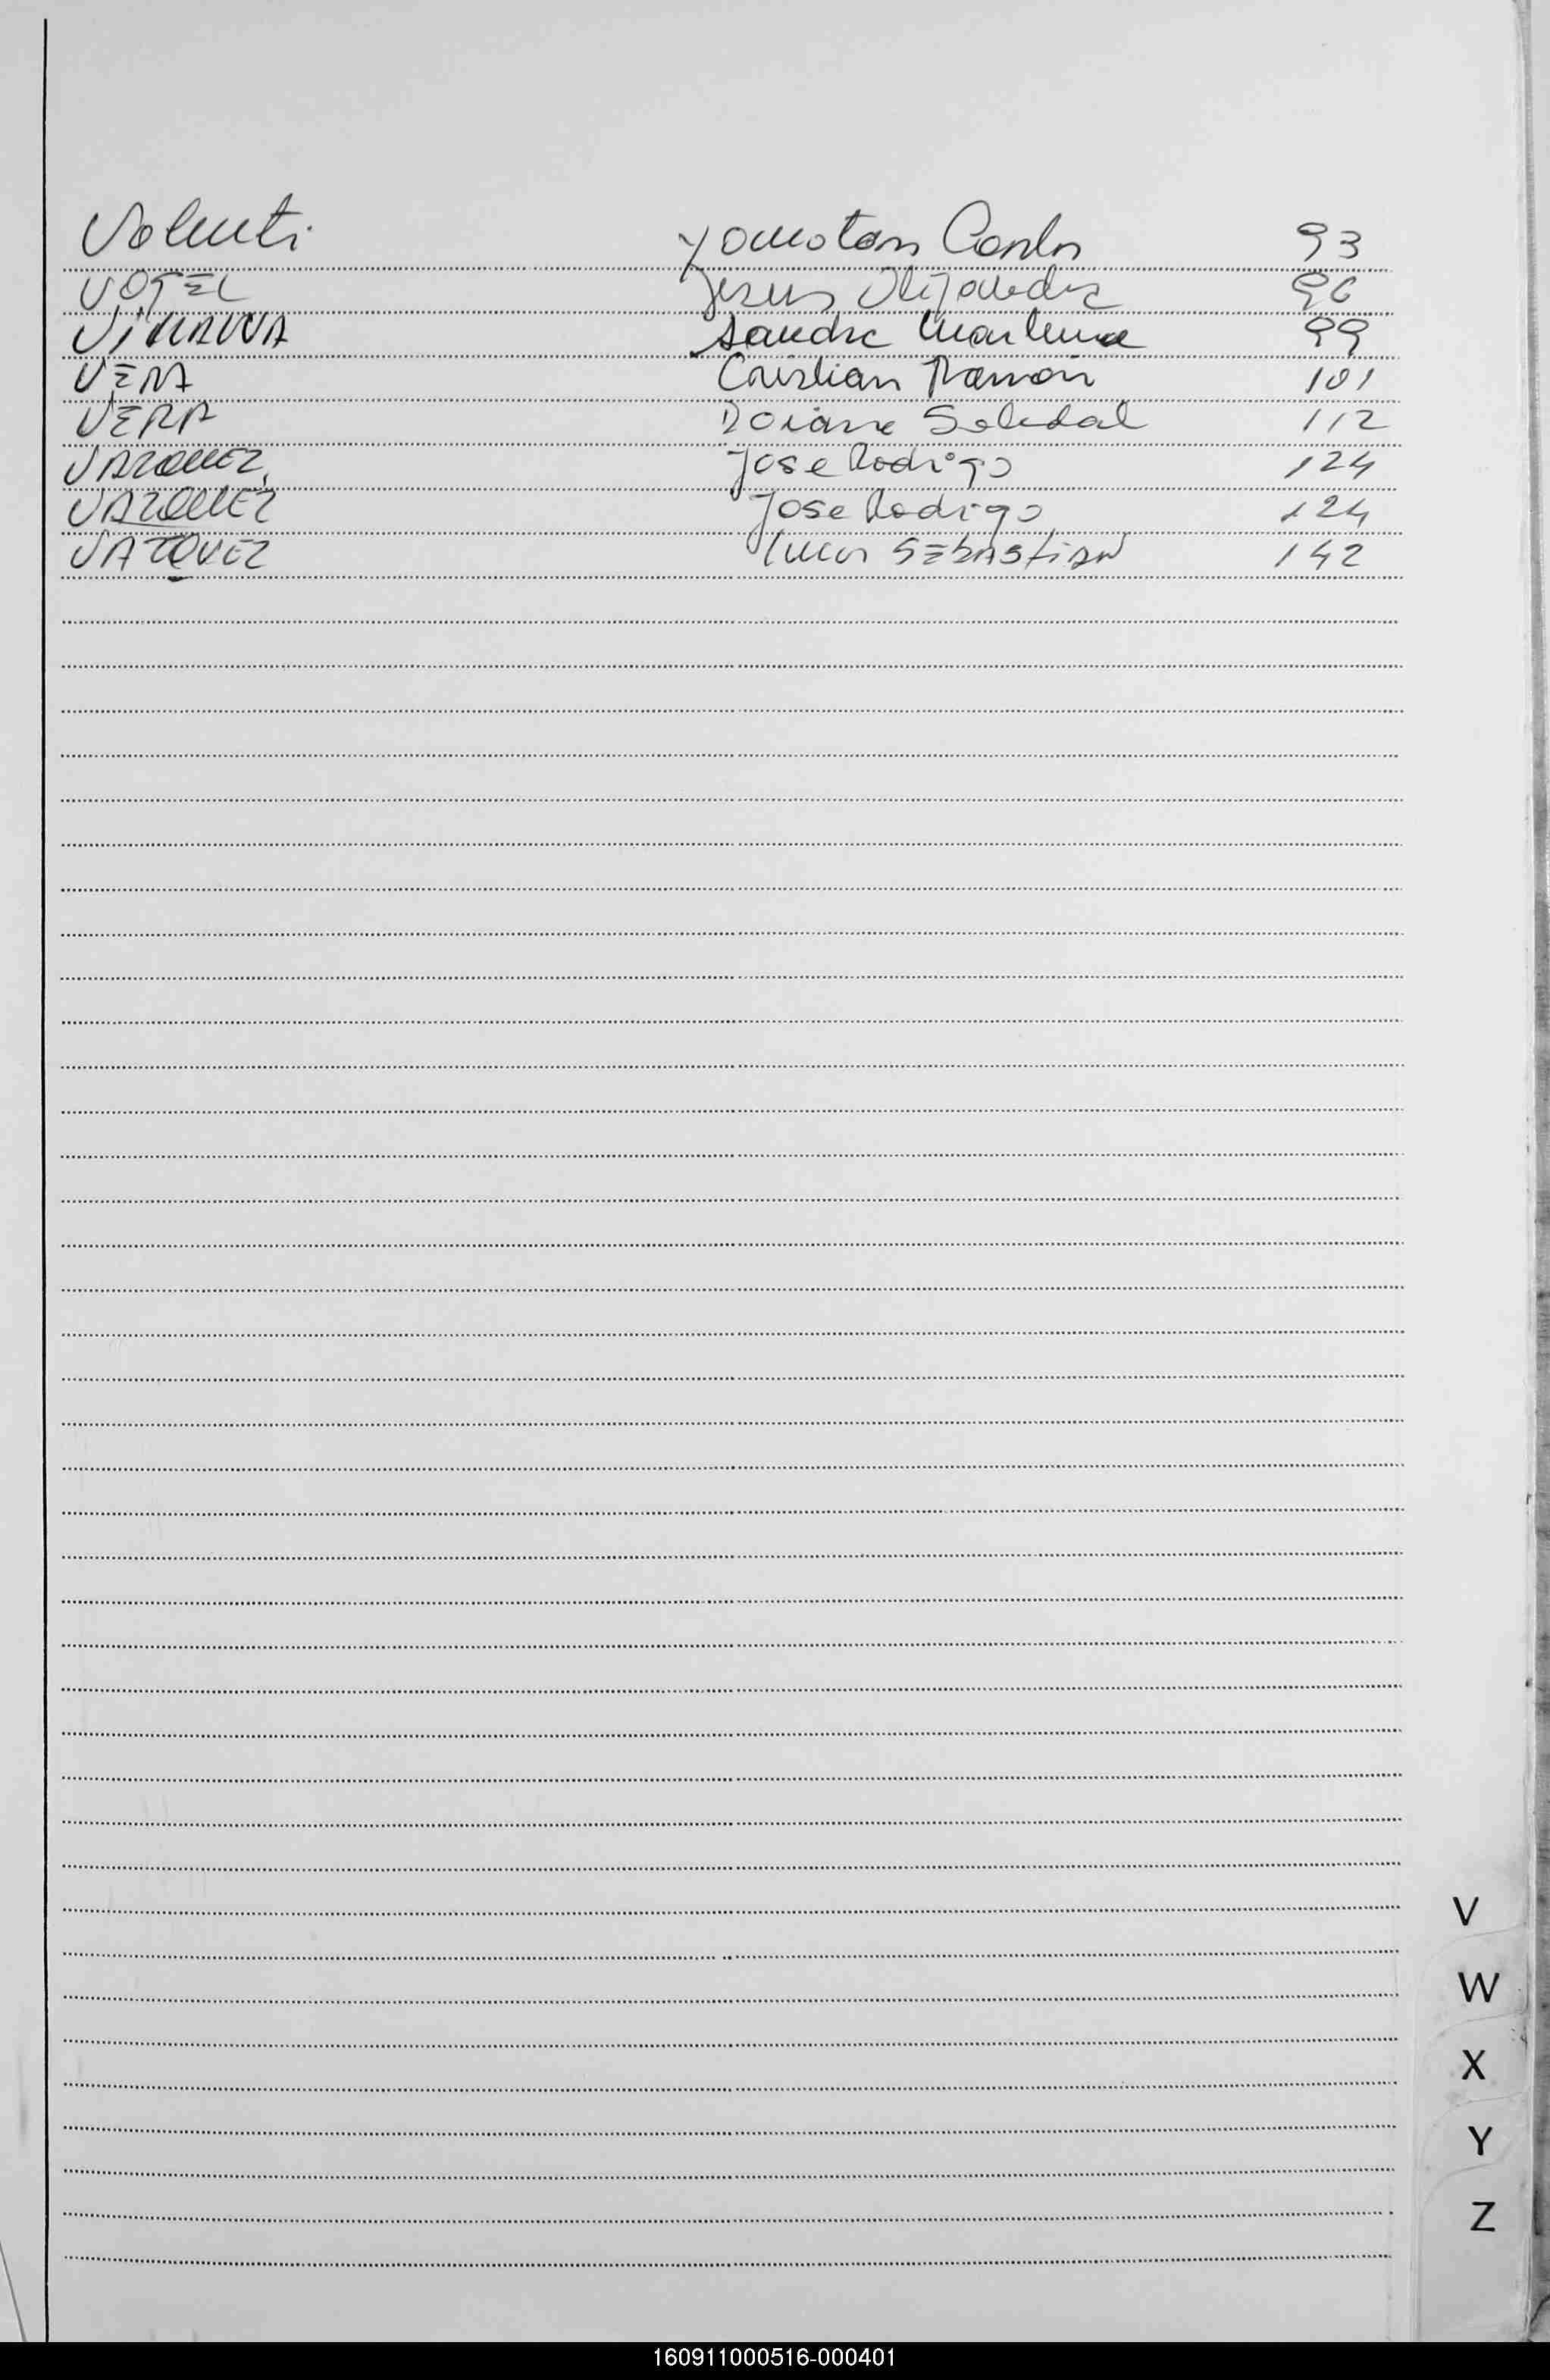 Valenti Yonatan Carlos 93
VOGEL Jesus Alejandro 96
Sandra Marlene 99
VERA Cristian Ramon 101
VERA Soledad 112
VAZQUEZ Jose Rodrigo 124
VAZQUEZ Jose Rodrigo 124
VAZQUEZ Lucas SEBASTIAN 142
V
W
X
Y
Z
160911000516-000401